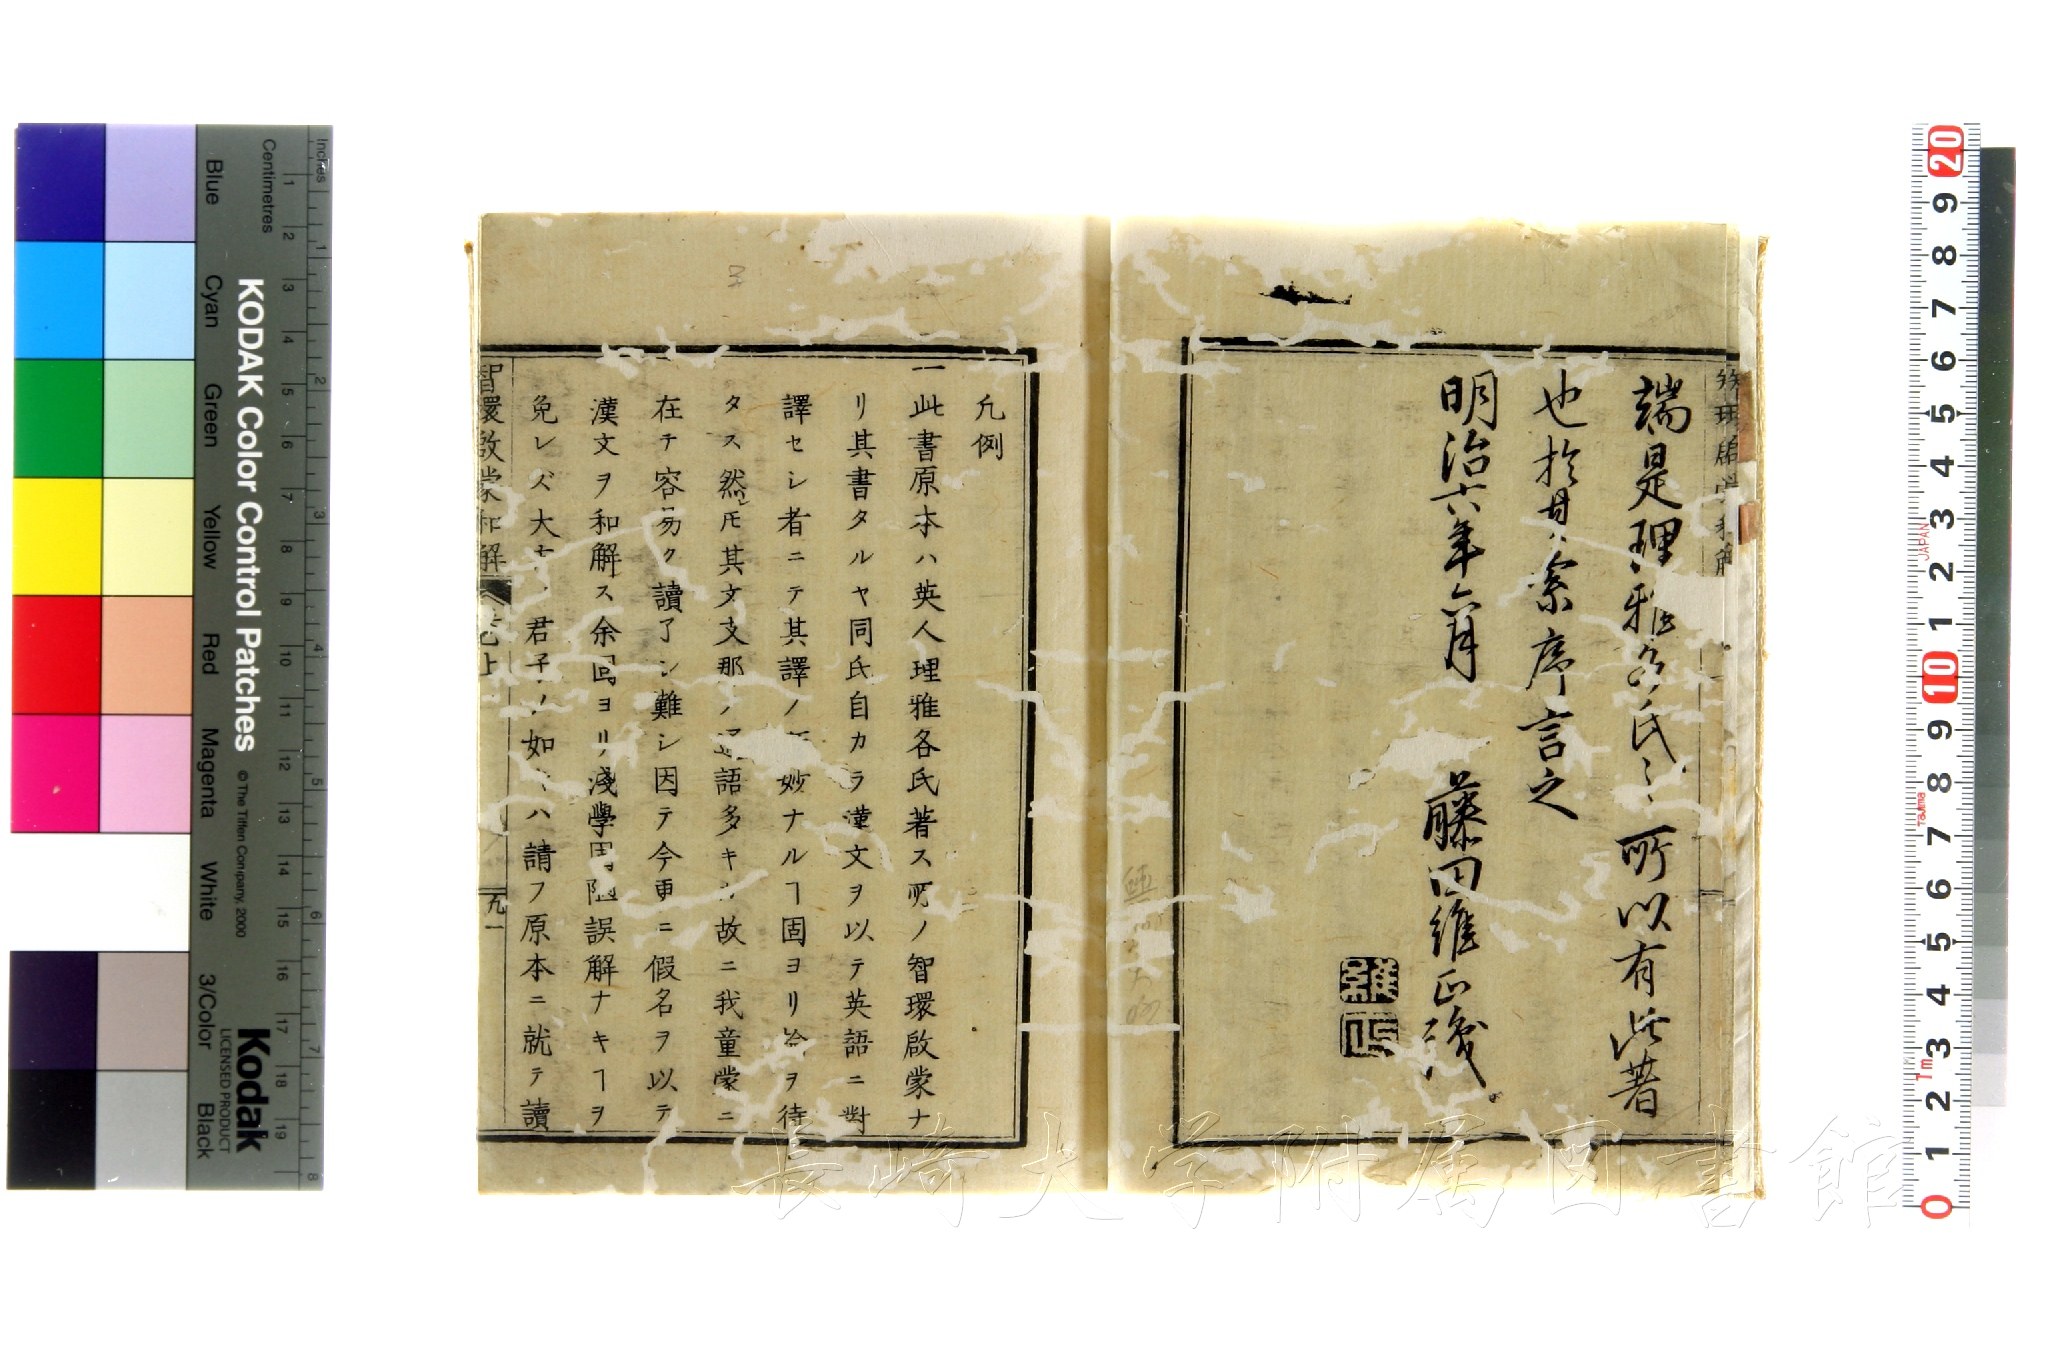 端是理雅各氏之所以有此著
也於其索序言之
明治六年六月
藤田維正護
維正
凡例
一此書原本ハ英人理雅各氏著ス所ノ智環啟蒙ナ
リ其書タルヤ同氏自カラ漢文ヲ以テ英語ニ對
譯セシ者ニテ其譯ノ妙ナルヿ固ヨリ論ヲ待
タス然レ𪜈其文支那ノ通語多キカ故ニ我童蒙ニ
在テ容易ク讀了シ難シ因テ今更ニ假名ヲ以テ
漢文ヲ和解ス余固ヨリ淺學固陋誤解ナキヿヲ
免レズ大方ノ君子ノ如キハ請フ原本ニ就テ讀
智環啟蒙和解
卷之上
凡一
長崎大学附属図書館
KODAK Color Control Patches
© The Tiffen Company, 2000
Kodak
LICENSED PRODUCT
Inches
Centimetres
Blue
Cyan
Green
Yellow
Red
Magenta
White
3/Color
Black
JAPAN
Tajima